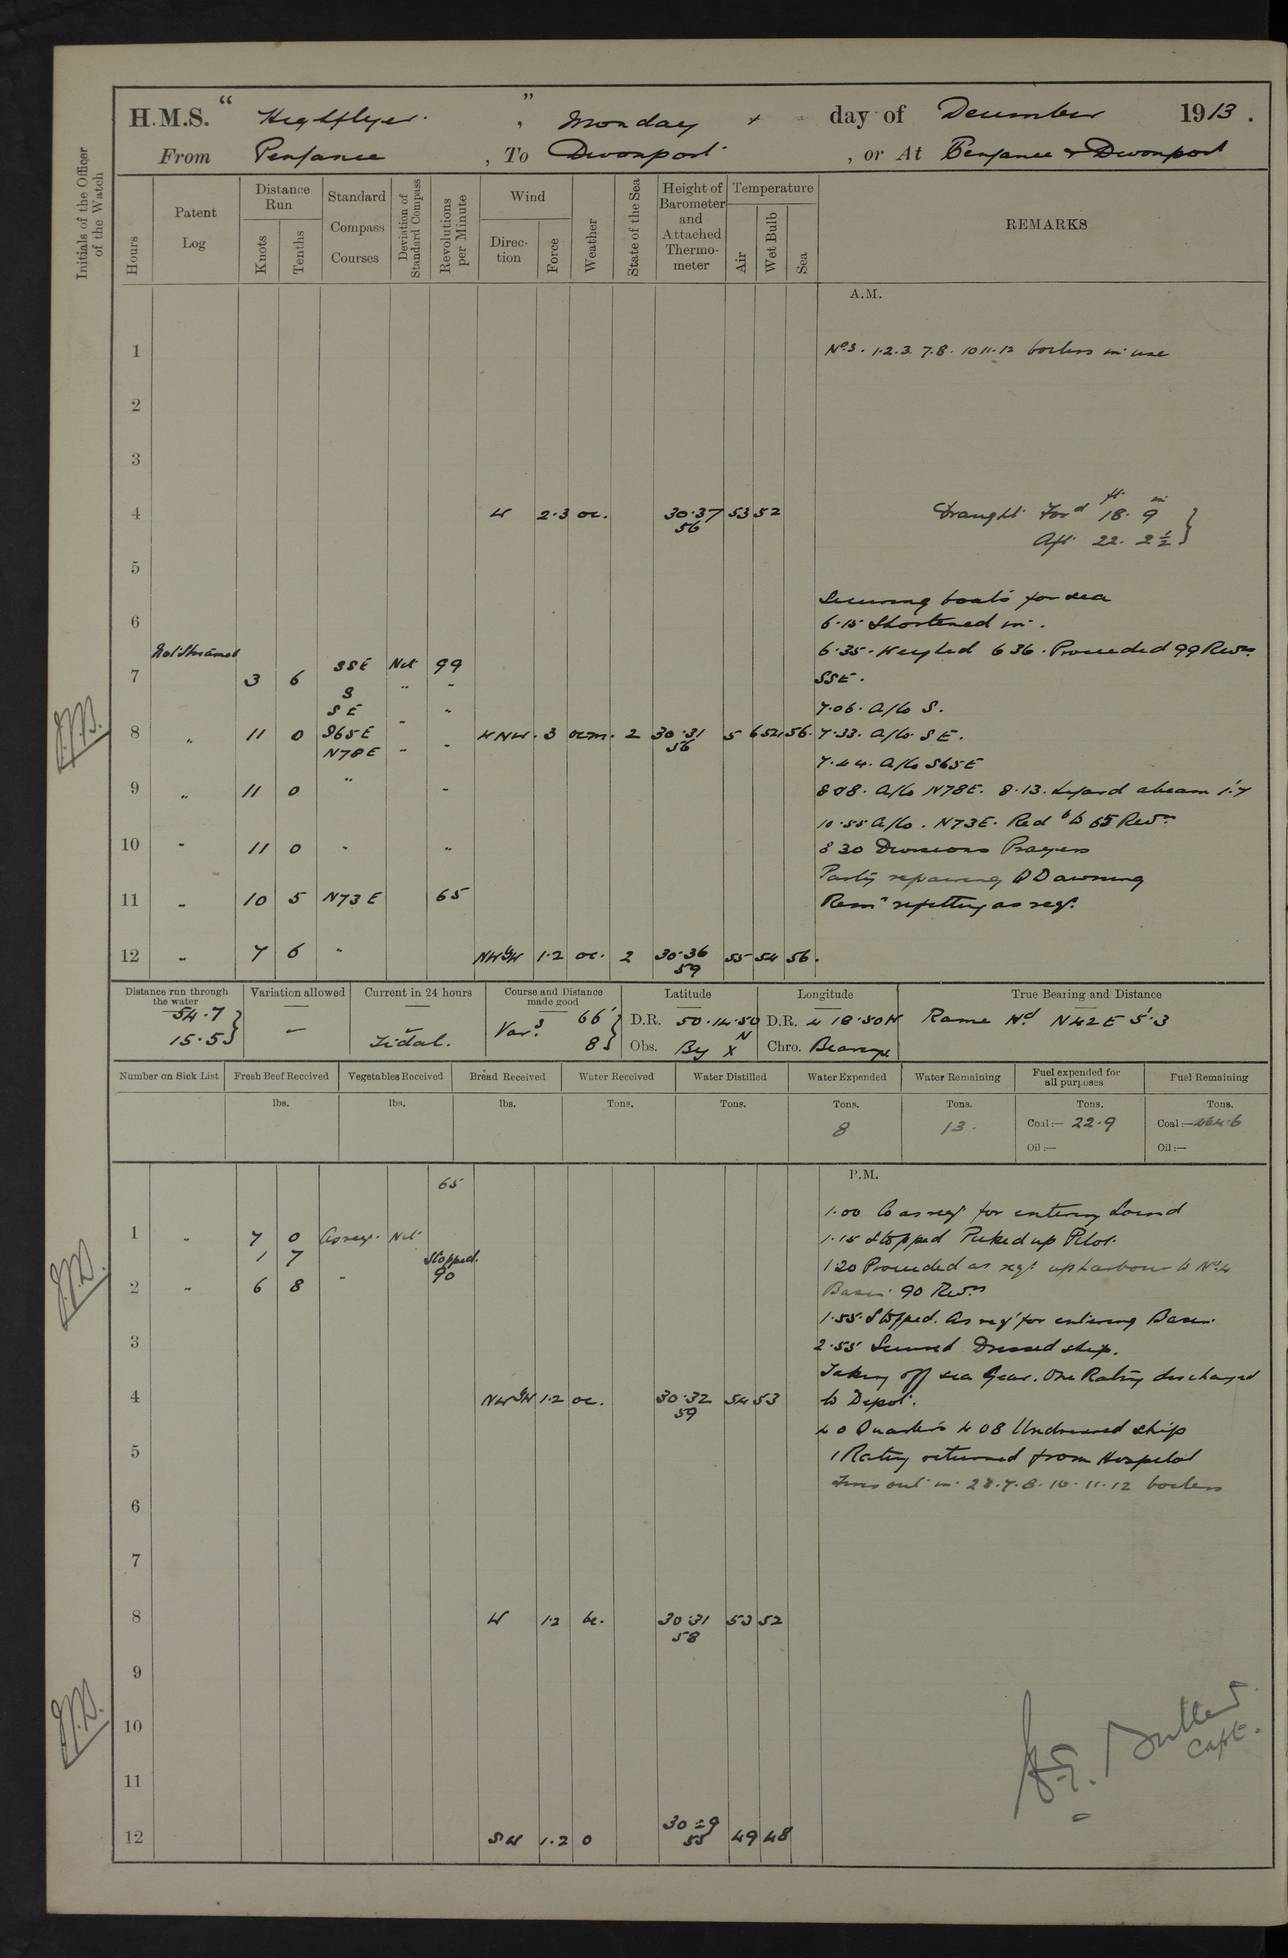 H.M.S. “ Highflyer. ” , Monday day of December 1913.
From Penzance , To Devonport , or At Penzance & Devonport
Initials of the Officer of the Watch
Hours
Patent Log
Distance Run
Knots
Tenths
Standard Compass Courses
Deviation of Standard Compass
Revolutions per Minute
Wind
Direction
Force
Weather
State of the Sea
Height of Barometer and Attached Thermometer
Temperature
Air
Wet Bulb
Sea
REMARKS
A.M.
1 Nos. 1.2.3. 7.8. 10 11.12 boilers in use
2
3
4 W 2.3 oc. 30.37 53 52 Draught Ford 18 ft. 9 in
56 Aft. 22. 2½
5
Securing boats for sea
6 6.15 Shortened in.
Not Streamed 6.35. Weighed 6 36. Proceeded 99 Revns
7 3 6 SSE Nil 99 SSE.
S " " 7.06. A/Co S.
SE " "
8 " 11 0 S65E WNW. 3 ocm. 2 30.31 5 6 54 56. 7.33. A/Co. SE.
N78E " " 56
7.44. A/Co S65E
9 " 11 0 " " 8 08. A/Co N78E. 8.13. Lizard abeam 1'.7
10.55 A/Co. N73E. Red to 65 Revns
10 " 11 0 " " 8 30 Divisions Prayers
Party repairing QD awning
11 " 10 5 N73E 65 Remr refitting as reqd.
12 " 7 6 " NWbyW 1.2 oc. 2 30.36 55 54 56.
59
Distance run through the water
54.7
15.5
Variation allowed
—
Current in 24 hours
Tidal.
Course and Distance made good
Vars. 66'
8
Latitude
D.R. 50.14.50 N
Obs. By X
Longitude
D.R. 4 18.50W
Chro. Bearings
True Bearing and Distance
Rame Hd N42E 5'.3
Number on Sick List
Fresh Beef Received
lbs.
Vegetables Received
lbs.
Bread Received
lbs.
Water Received
Tons.
Water Distilled
Tons.
Water Expended
Tons.
8
Water Remaining
Tons.
13.
Fuel expended for all purposes
Tons.
Coal:— 22.9
Oil:—
Fuel Remaining
Tons.
Coal:— 464.6
Oil:—
P.M.
65
1.00 Co as reqd for entering Sound
1 " 7 0 As req. Nil 1.15 Stopped Picked up Pilot.
1 7 Stopped. 1.20 Proceeded as reqd up harbour to No. 4
2 " 6 8 " 90 Basin 90 Revns
1.55. Stopped. As reqd for entering Basin.
3 2.55 Secured Dressed ship.
Taking off sea Gear. One Rating discharged
4 NWbyW 1.2 oc. 30.32 54 53 to Depot.
59
4 0 Quarters 4 08 Undressed ship
5 1 Rating returned from Hospital
Fires out in 2 3. 7. 8. 10. 11. 12 boilers
6
7
8 W 1.2 bc. 30.31 53 52
58
9
10
11
12 SW 1.2 0 30 29 49 48
55
Buller
Capt.